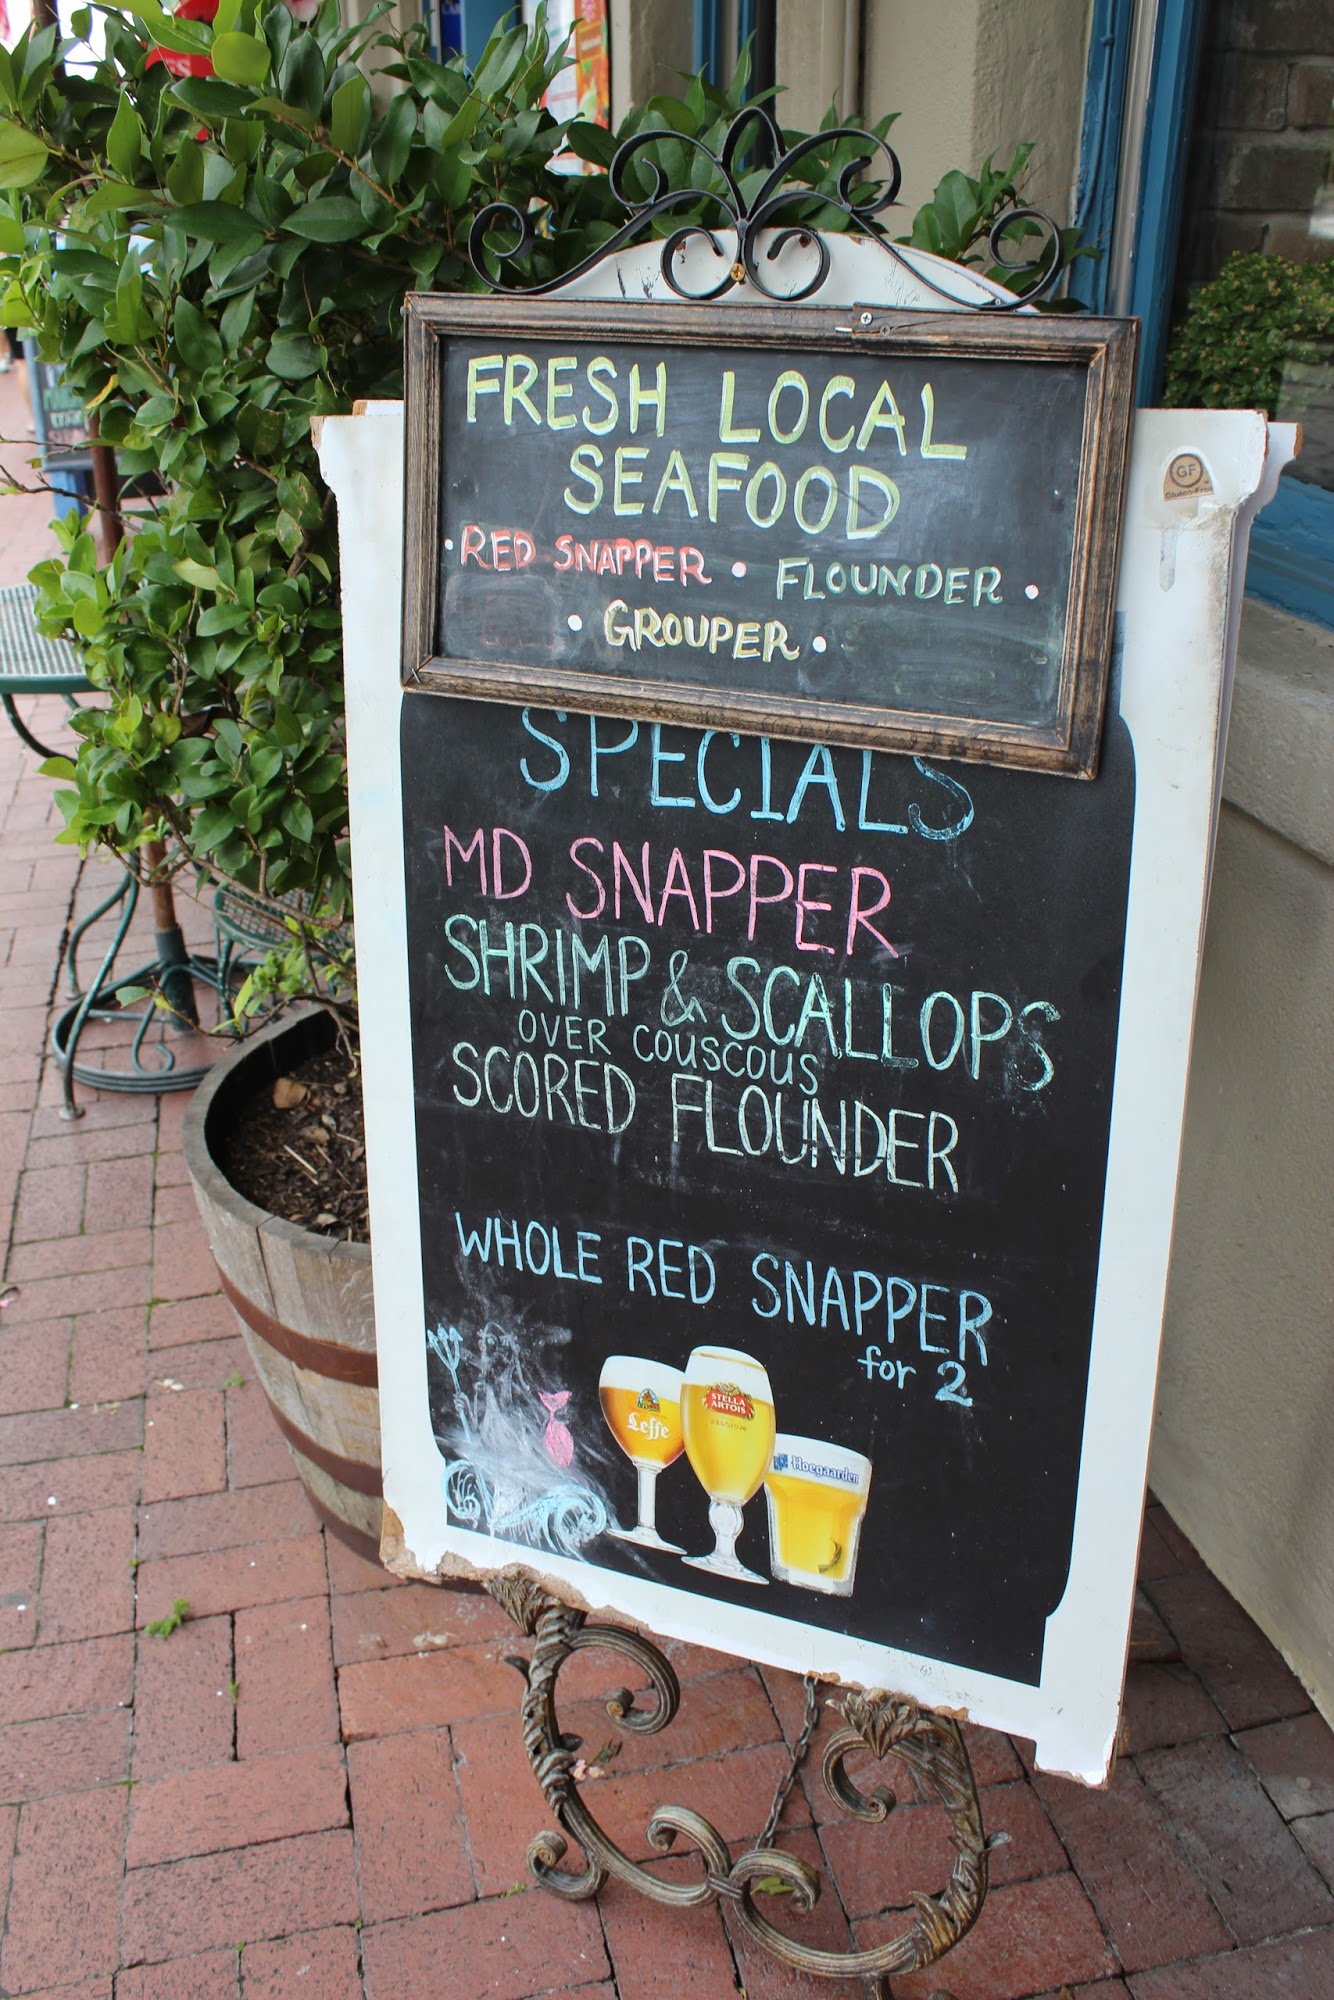 FRESH LOCAL
SEAFOOD
• RED SNAPPER • FLOUNDER •
• GROUPER •
GF
Gluten-Free
SPECIALS
MD SNAPPER
SHRIMP & SCALLOPS
OVER COUSCOUS
SCORED FLOUNDER
WHOLE RED SNAPPER
for 2
Leffe
STELLA
ARTOIS
BELGIUM
Hoegaarden